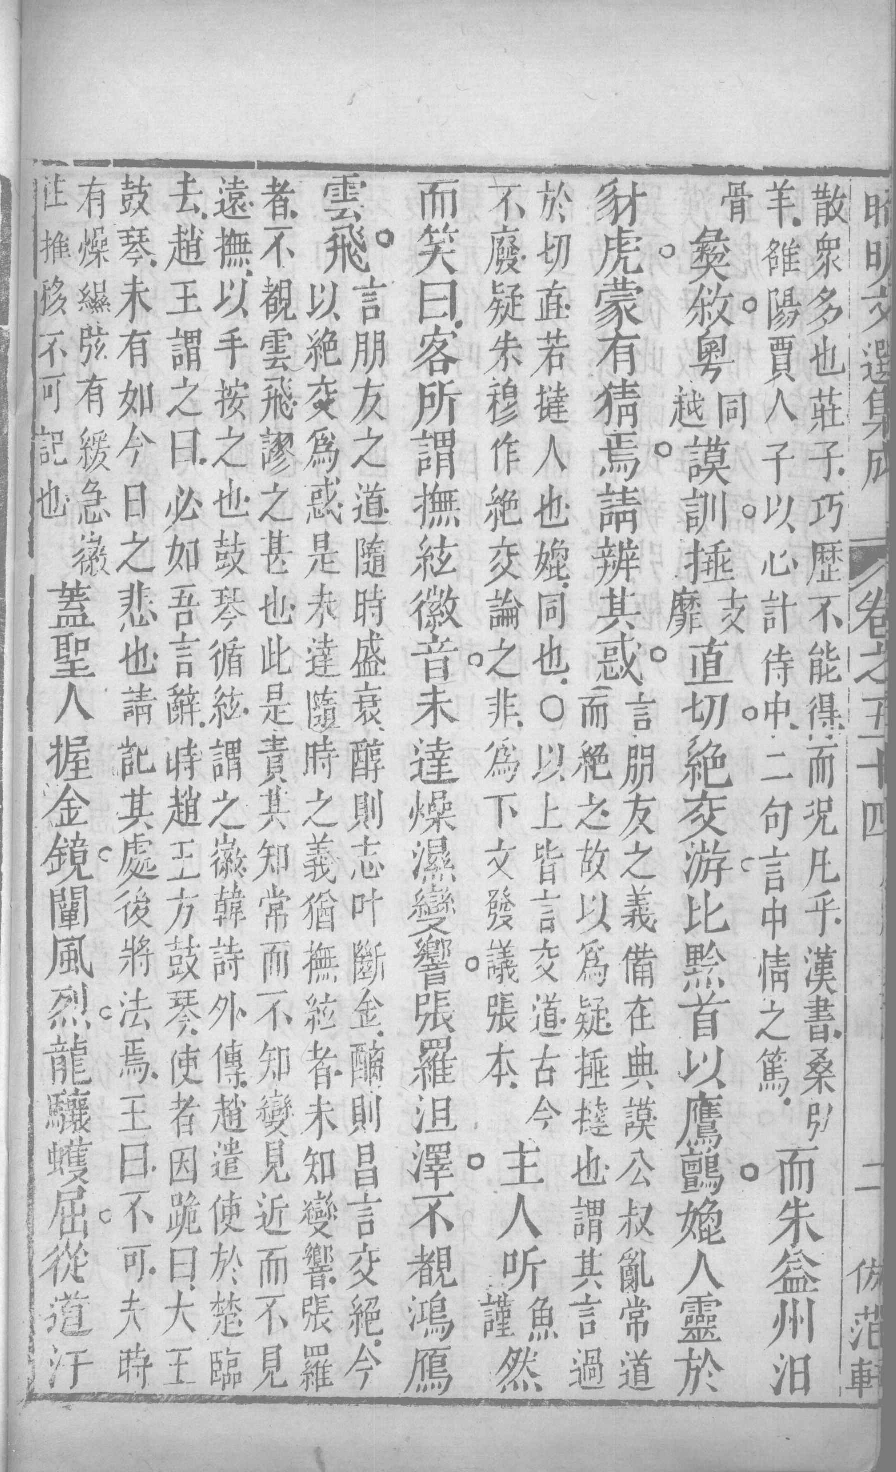 昭明文選集成 卷之五十四 二 仿范軒
散衆多也莊子巧歷不能得而況凡乎漢書桑弘
羊雒陽賈人子以心計侍中二句言中情之篤
而朱益州汨
骨
彜敘粤
同
越
謨訓捶
支
靡
直切絶交游比黔首以鷹鸇媲人靈於
豺虎蒙有猜焉請辨其惑
言朋友之義備在典謨公叔亂常道
而絶之故以爲疑捶撻也謂其言過
於切直若撻人也媲同也○以上皆言交道古今
不廢疑朱穆作絶交論之非爲下文發議張本
主人听
魚
謹
然
而笑曰客所謂撫絃徽音未達燥濕變響張羅沮澤不覩鴻鴈
雲飛
言朋友之道隨時盛衰醇則志叶斷金醨則昌言交絶今
以絶交爲惑是未達隨時之義猶撫絃者未知變響張羅
者不覩雲飛謬之甚也此是責其知常而不知變見近而不見
遠撫以手按之也鼓琴循絃謂之徽韓詩外傳趙遣使於楚臨
去趙王謂之曰必如吾言辭時趙王方鼓琴使者因跪曰大王
鼓琴未有如今日之悲也請記其處後將法焉王曰不可夫時
有燥濕弦有緩急徽
往推移不可記也
蓋聖人握金鏡闡風烈龍驤蠖屈從道汙